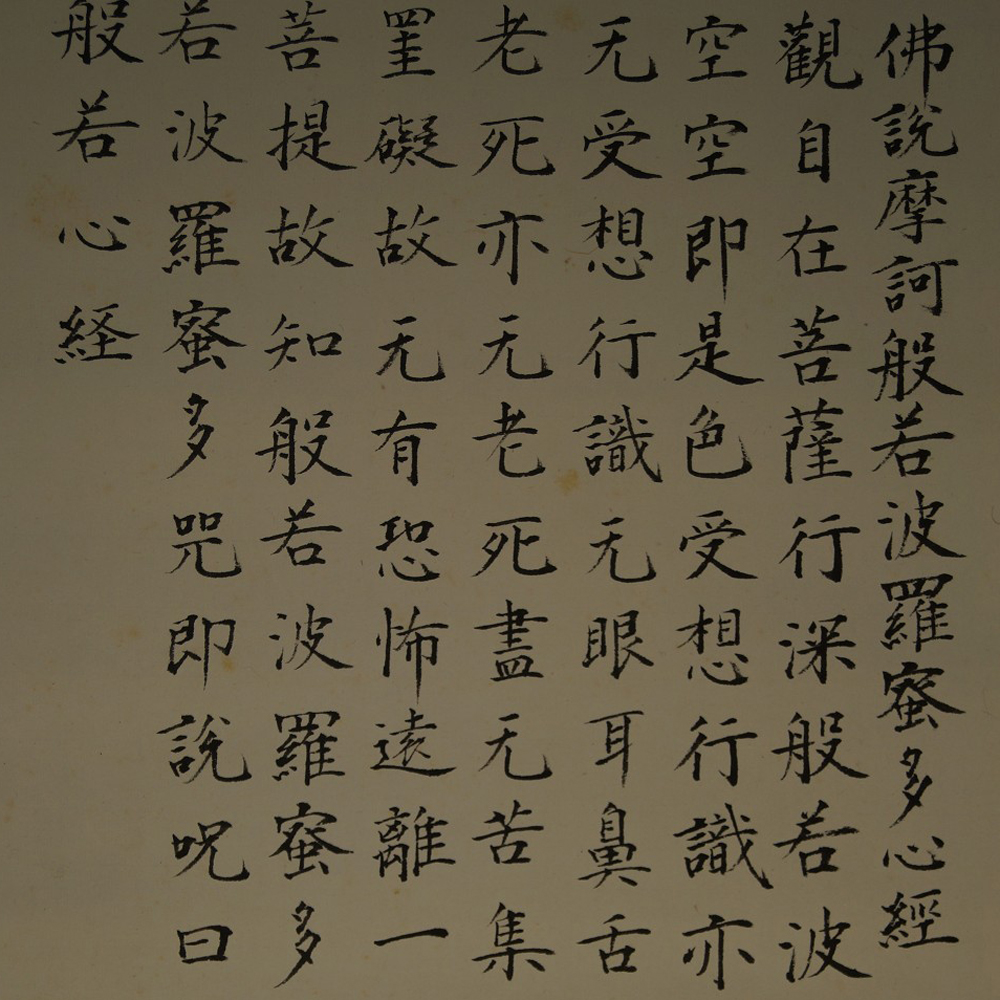 佛說摩訶般若波羅蜜多心經
觀自在菩薩行深般若波
空空即是色受想行識亦
无受想行識无眼耳鼻舌
老死亦无老死盡无苦集
罣礙故无有恐怖遠離一
菩提故知般若波羅蜜多
若波羅蜜多咒即說呪曰
般若心経